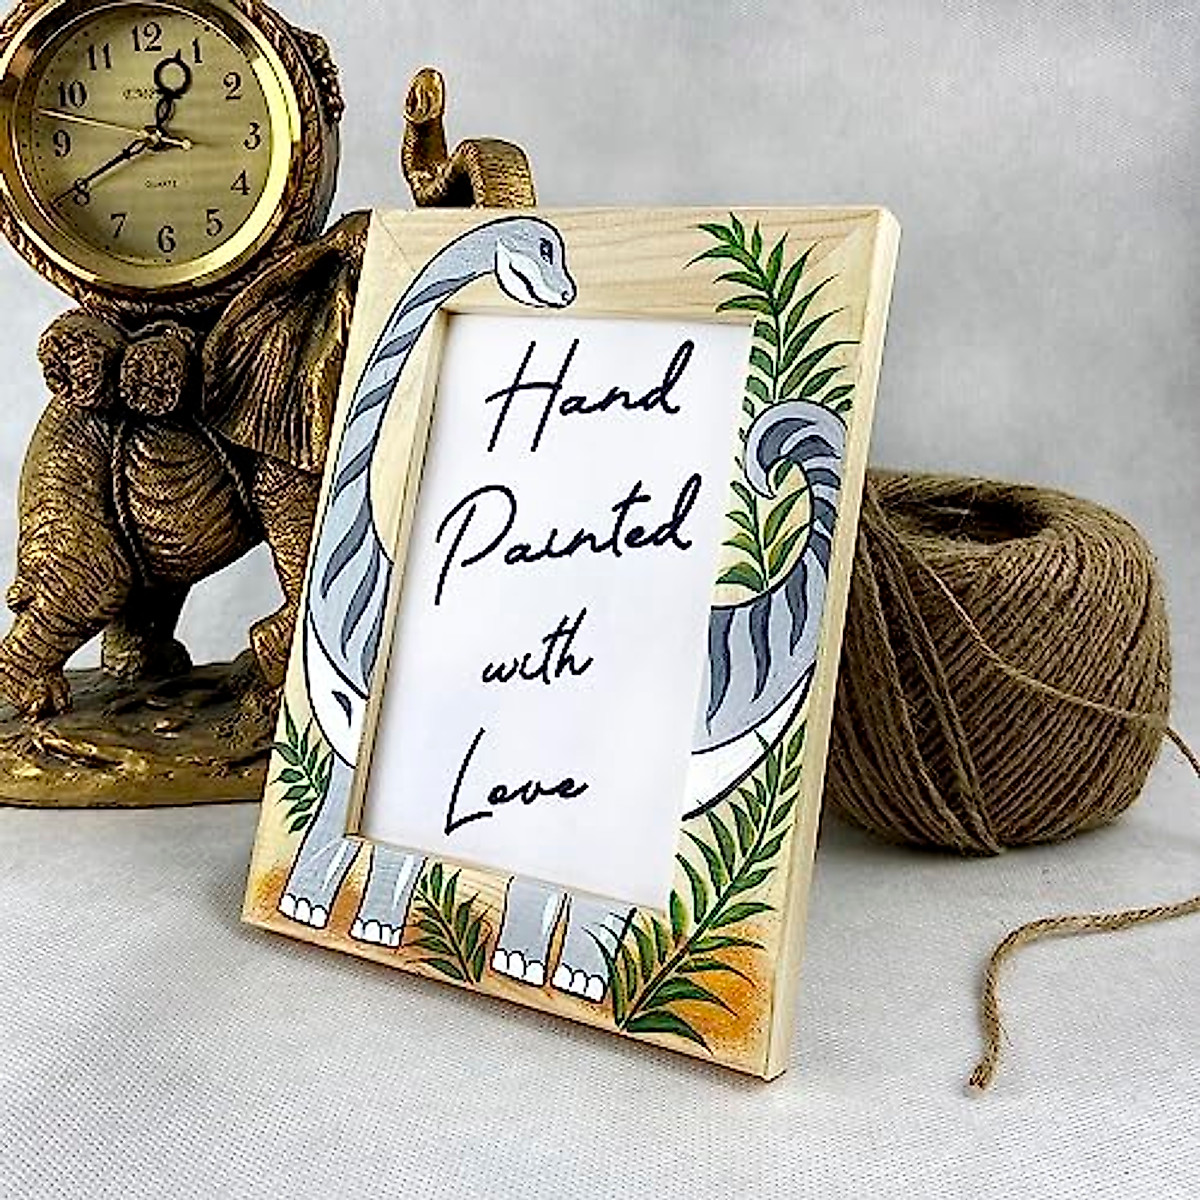 Hand
Painted
with
Love
12
1
2
3
4
5
6
7
8
9
10
11
QUARTZ